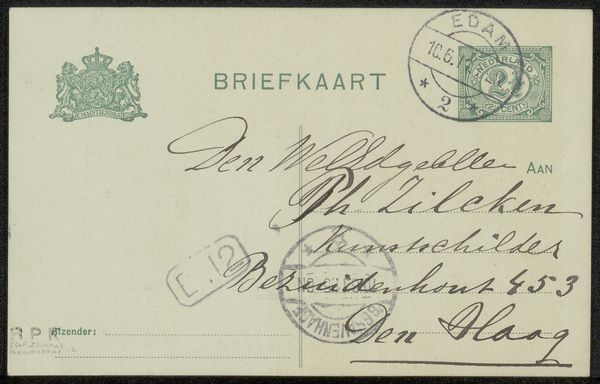 EDAM
10.6.1
2
NEDERLAND
2½
CENT
JE MAINTIENDRAI
BRIEFKAART
AAN
Den WelEdgeb. Heer
Ph. Zilcken
Kunstschilder
Bezuidenhout 453
Den Haag
E. 12
'S-GRAVENHAGE
R P K
Afzender: